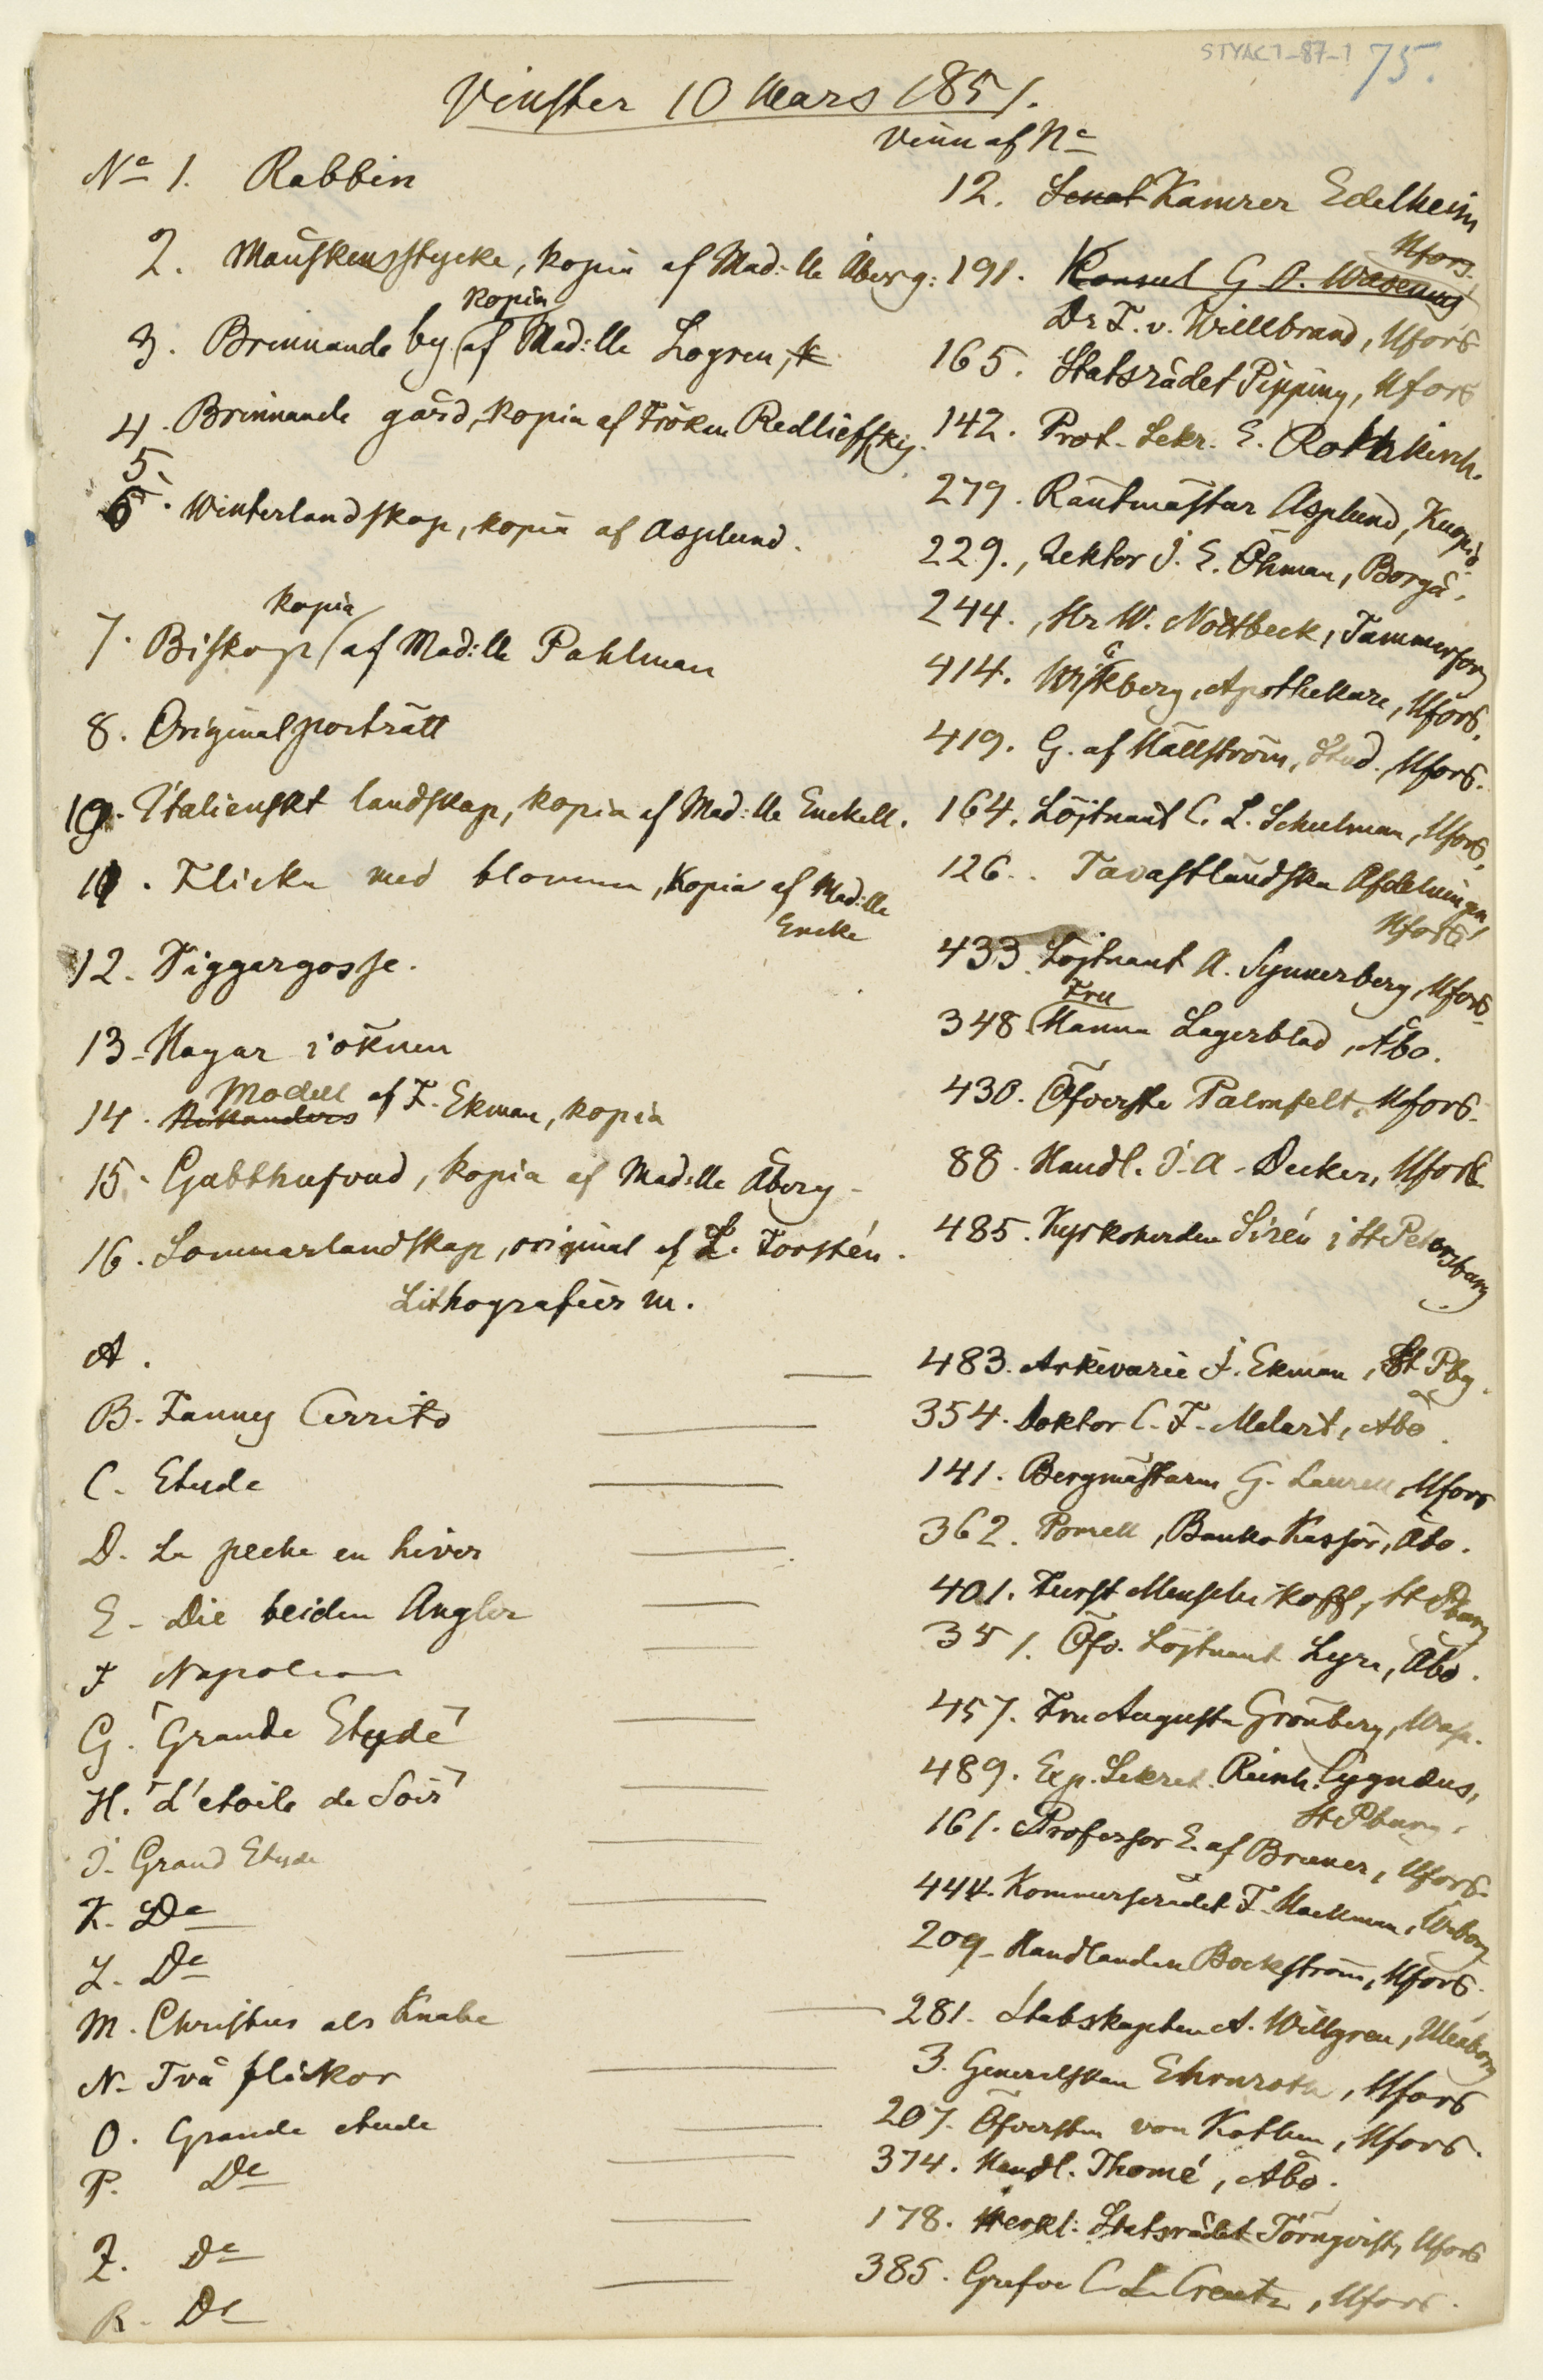 STYAC1-87-1 75.
Vinster 10 Mars 1851.
Vinn af No
No 1. Rabbin 12. Senat Kamrer Edelheim
Hfors.
2. Mänskensstycke, kopia af Mad:lle Åberg: 191. Konsul G. O. Wasenius
Dr F. v. Willbrand, Hfors
kopia
3. Brinnande by af Mad:lle Logren, k 165. Statsrådet Pipping, Hfors
4. Brinnande gård, kopia af Fröken Redlieffsky. 142. Prot. Sekr. E. Rotkirch.
5. 279. Räntmästar Asplund, Kuopio.
6. Winterlandskap, kopia af Asplund. 229., Lektor J. E. Öhman, Borgå.
kopia
7. Biskop af Mad:lle Pahlman 244., Hr W. Nottbeck, Tammerfors
414. Wikberg, Apothekare, Hfors.
8. Originalporträtt 419. G. af Hällström, Stud. Hfors.
10. Italienskt landskap, kopia af Mad:lle Enckell. 164. Löjtnant C. L. Schulman, Hfors.
11. Flicka med blomma, Kopia af Mad:lle 126.. Tavastländska Afdelningen,
Encke Hfors.
12. Tiggargosse. 433. Löjtnant A. Synnerberg, Hfors.
Fru
13. Hagar i öknen 348. Hanna Lagerblad, Åbo.
Modell
14. af F. Ekman, kopia 430. Öfverste Palmfelt, Hfors.
15. Gubbhufvud, kopia af Mad:lle Åberg. 88. Handl. J. A. Decker, Hfors.
16. Sommarlandskap, original af L. Forstén. 485. Kyrkoherden Sirén i St Petersburg
Lithografier m.
A. 483. Arkivarie F. Ekman, St Pbg.
B. Fanny Cerrito 354. Doktor C. F. Melart, Åbo.
C. Etude 141. Bergmästarn G. Laurell, Hfors
D. La peche en hiver 362. Ponell, Banko Kassör, Åbo.
E. Die beiden Angler 401. Furst Menschikoff, St Pburg
F Napoleon 351. Öfv. Löjtnant Lyra, Åbo.
G. "Grande Etyde" 457. Fru Augusta Grönberg, Wasa.
H. "L'etoile de Soir" 489. Exp. Sekret. Reinh. Cygnæus,
St Pburg.
J. Grand Etude 161. Professor E. af Bruner, Hfors.
K. Do 444. Kommerserådet F. Hackman, Wiborg
L. Do 209. Handlanden Bockström, Hfors.
M. Christus als Knabe 281. Stabskapten A. Willgren, Uleåborg
N. Två flickor 3. Generalskan Ehrnrooth, Hfors
O. Grande etude 207. Öfversten von Kothen, Hfors.
P. Do 374. Handl. Thomé, Åbo.
Q. Do 178. Verkl. Statsrådet Törnqvist, Hfors
R. Do 385. Grefve C. L. Creutz, Hfors.